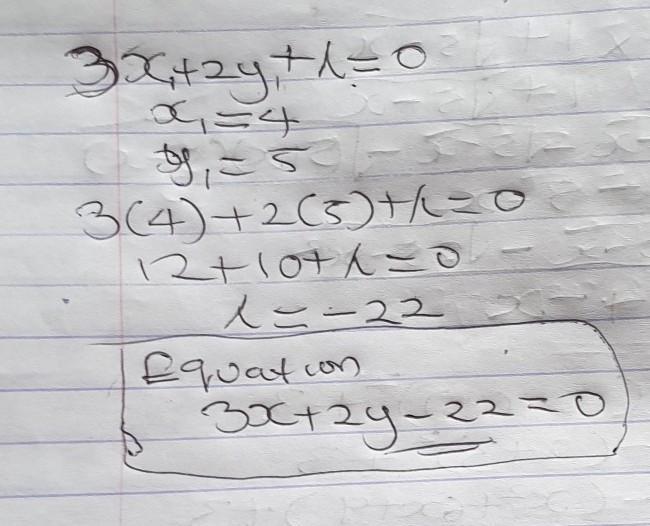 3x₁+2y₁+λ=0
x₁=4
y₁=5
3(4)+2(5)+λ=0
12+10+λ=0
λ=-22
Equation
3x+2y-22=0